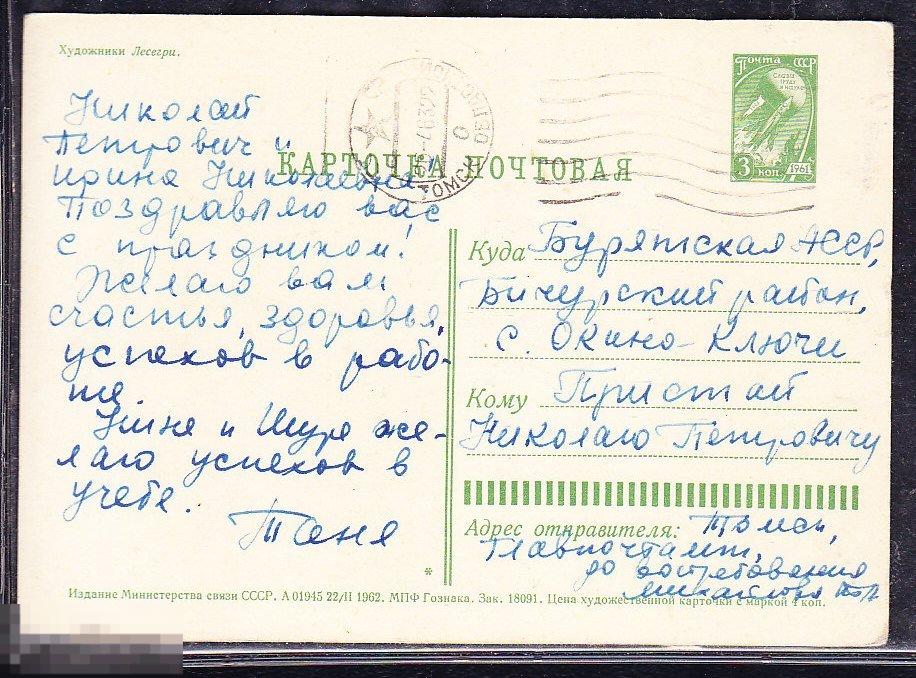 Художники Лесегри.
Почта СССР
Слава труду и науке
3 коп. 1961
ТОМСК
КАРТОЧКА ПОЧТОВАЯ
Николай
Петрович и
Ирина Николаевна.
Поздравляю вас
с праздником!
Желаю вам
счастья, здоровья,
успехов в рабо-
те.
Нине и Шуре же-
лаю успехов в
учебе.
Таня
Куда Бурятская АССР,
Бичурский район,
с. Окино-Ключи
Кому Пристай
Николаю Петровичу
Адрес отправителя: Томск,
Главпочтамт,
до востребования
Михайлова
Издание Министерства связи СССР. А 01945 22/II 1962. МПФ Гознака. Зак. 18091. Цена художественной карточки с маркой 4 коп.